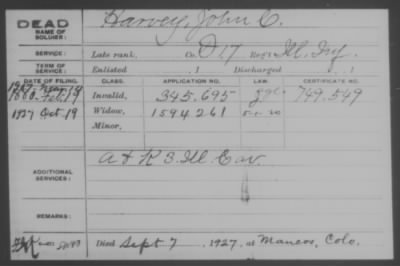 DEAD
NAME OF SOLDIER:
Harvey, John C.
SERVICE:
Late rank, Co. D 17 Reg't Ill. Inf.
TERM OF SERVICE:
Enlisted , 1 Discharged , 1
DATE OF FILING. CLASS. APPLICATION NO. LAW. CERTIFICATE NO.
1880 Feb. 19 Invalid, 345.695 749.549
1927 Oct. 19 Widow, 1594261
Minor,
ADDITIONAL SERVICES:
A & K 3 Ill Cav.
REMARKS:
Died Sept 7 1927, at Mancos, Colo.